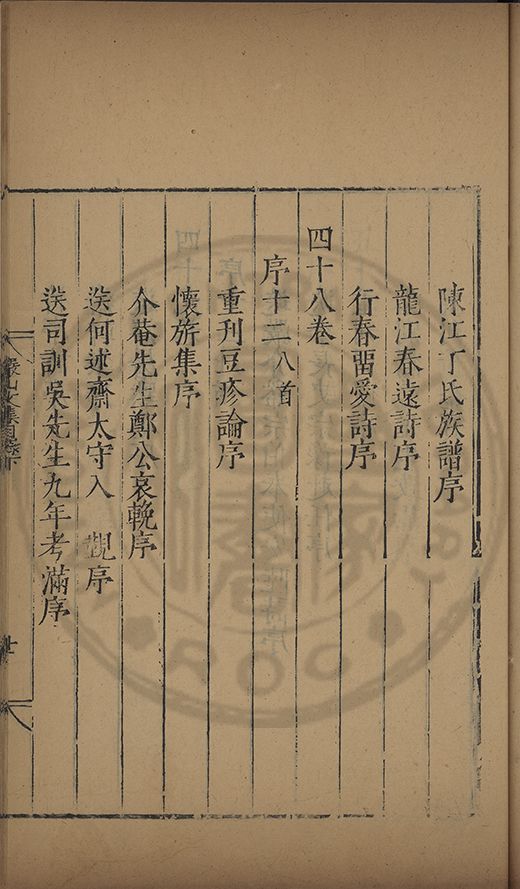 陳江丁氏族譜序
龍江春遠詩序
行春畱愛詩序
四十八卷
序十二八首
重刊豆疹論序
懷旂集序
介菴先生鄭公哀輓序
送何述齋太守入　覲序
送司訓吳先生九年考滿序